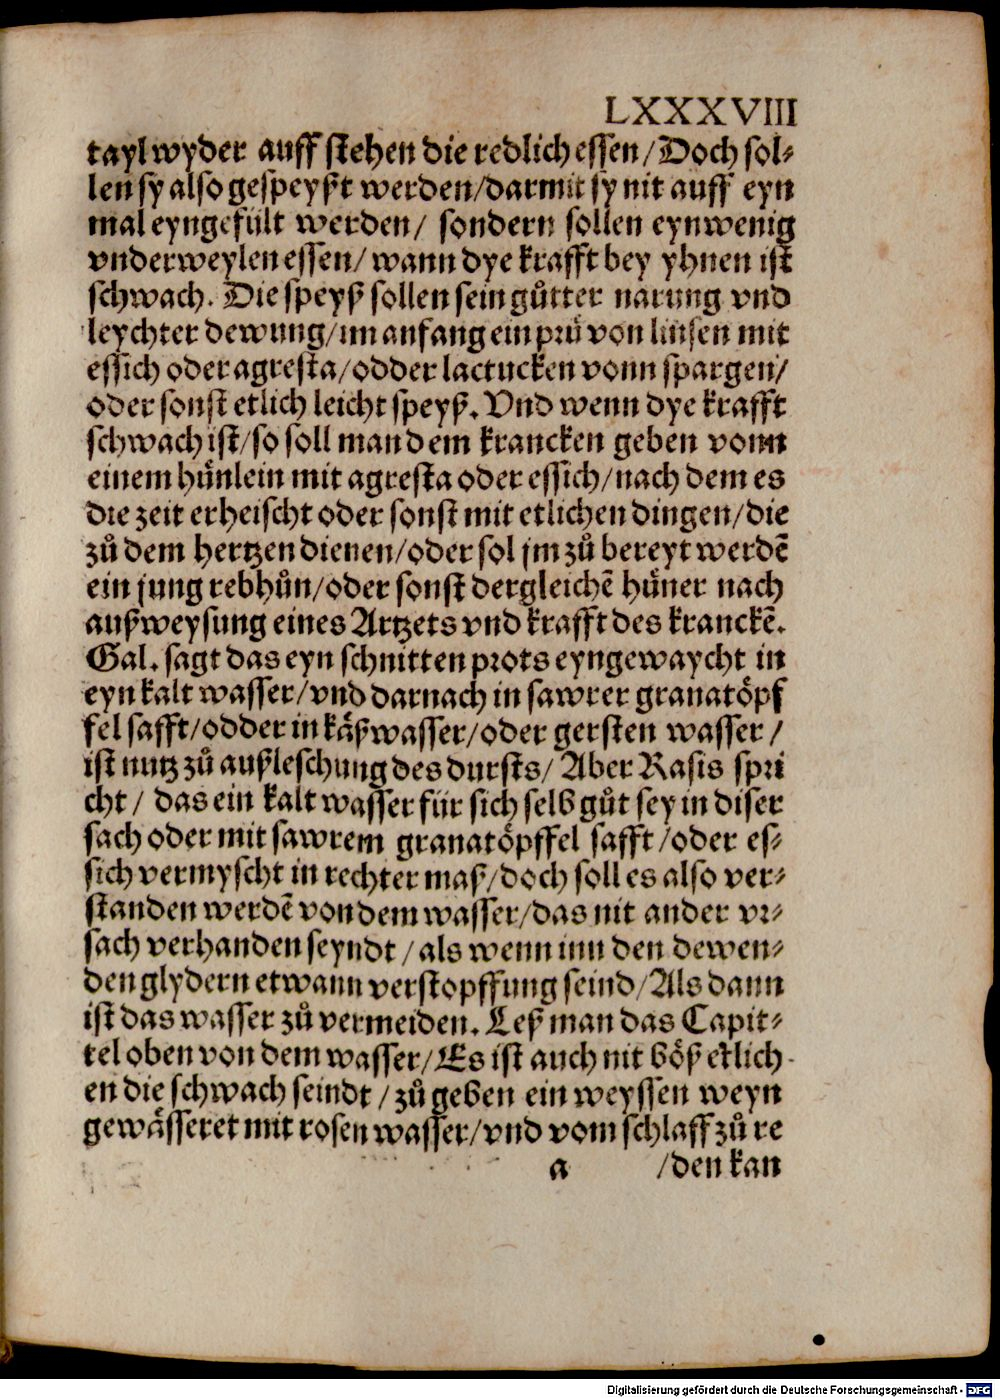 LXXXVIII
tayl wyder auff stehen die redlich essen/ Doch sol-
len sy also gespeyßt werden/ darmit sy nit auff eyn
mal eyngefült werden/ sondern sollen eyn wenig
vnderweylen essen/ wann dye krafft bey yhnen ist
schwach. Die speyß sollen sein gůtter narung vnd
leychter dewung/ im anfang ein prů von linsen mit
essich oder agresta/ odder lactucken vonn spargen/
oder sonst etlich leicht speyß. Vnd wenn dye krafft
schwach ist/ so soll man dem krancken geben vonn
einem hůnlein mit agresta oder essich/ nach dem es
die zeit erheischt oder sonst mit etlichen dingen/ die
zů dem hertzen dienen/ oder sol jm zů bereyt werdē
ein jung rebhůn/ oder sonst dergleichē hůner nach
außweysung eines Artzets vnd krafft des kranckē.
Gal. sagt das eyn schnitten prots eyngewaycht in
eyn kalt wasser/ vnd darnach in sawrer granatöpf
fel safft/ odder in käßwasser/ oder gersten wasser/
ist nutz zů außleschung des dursts/ Aber Rasis spri
cht/ das ein kalt wasser für sich selb gůt sey in diser
sach oder mit sawrem granatöpffel safft/ oder es-
sich vermyscht in rechter maß/ doch soll es also ver-
standen werdē von dem wasser/ das nit ander vr-
sach verhanden seyndt/ als wenn inn den dewen-
den glydern etwann verstopffung seind/ Als dann
ist das wasser zů vermeiden. Leß man das Capit-
tel oben von dem wasser/ Es ist auch nit böß etlich-
en die schwach seindt/ zů geben ein weyssen weyn
gewässeret mit rosen wasser/ vnd vom schlaff zů re
a /den kan
Digitalisierung gefördert durch die Deutsche Forschungsgemeinschaft - DFG